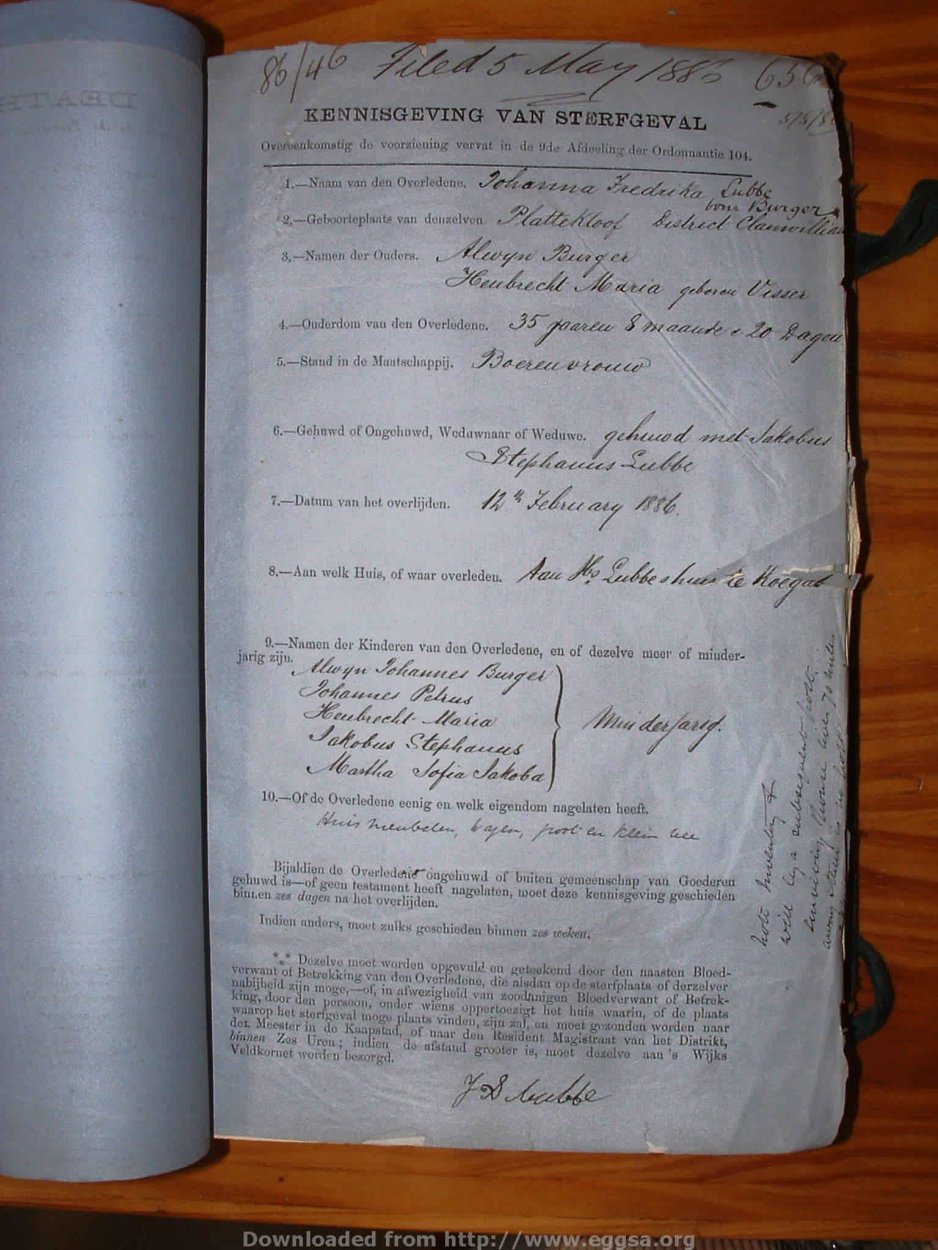 86/46 Filed 5 May 1886 656
5/5/86
KENNISGEVING VAN STERFGEVAL
Overeenkomstig de voorziening vervat in de 9de Afdeeling der Ordonnantie 104.
1.—Naam van den Overledene. Johanna Fredrika Lubbe
born Burger
2.—Geboorteplaats van denzelven Plattekloof District Clanwilliam
3.—Namen der Ouders. Alwyn Burger
Heubrecht Maria geboren Visser
4.—Ouderdom van den Overledene. 35 jaaren 8 maande & 20 Dagen
5.—Stand in de Maatschappij. Boerenvrouw
6.—Gehuwd of Ongehuwd, Weduwnaar of Weduwe. gehuwd met Jakobus
Stephanus Lubbe
7.—Datum van het overlijden. 12th February 1886.
8.—Aan welk Huis, of waar overleden. Aan Hs Lubbes huis te Koegab
9.—Namen der Kinderen van den Overledene, en of dezelve meer of minder-
jarig zijn.
Alwyn Johannes Burger
Johannes Petrus
Heubrecht Maria
Jakobus Stephanus
Martha Sofia Jakoba
Minderjarig.
10.—Of de Overledene eenig en welk eigendom nagelaten heeft.
Huis meubelen, wagen, groot en klein vee
Bijaldien de Overledene ongehuwd of buiten gemeenschap van Goederen
gehuwd is—of geen testament heeft nagelaten, moet deze kennisgeving geschieden
binnen zes dagen na het overlijden.
Indien anders, moet zulks geschieden binnen zes weken.
*.* Dezelve moet worden opgevuld en geteekend door den naasten Bloed-
verwant of Betrekking van den Overledene, die alsdan op de sterfplaats of derzelver
nabijheid zijn moge,—of, in afwezigheid van zoodanigen Bloedverwant of Betrek-
king, door den persoon, onder wiens oppertoezigt het huis waarin, of de plaats
waarop het sterfgeval moge plaats vinden, zijn zal, en moet gezonden worden naar
den Meester in de Kaapstad, of naar den Resident Magistraat van het Distrikt,
binnen Zes Uren; indien de afstand grooter is, moet dezelve aan 's Wijks
Veldkornet worden bezorgd.
J S Lubbe
note inventory &
will by a subsequent post.
surviving spouse
Downloaded from http://www.eggsa.org